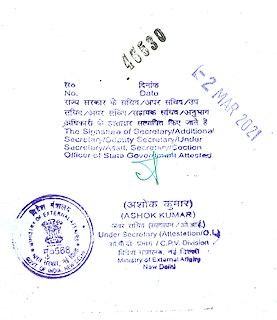 46530
सं० दिनांक
No. Date
-2 MAR 2021
राज्य सरकार के सचिव/अपर सचिव/उप
सचिव/अवर सचिव/सहायक सचिव/अनुभाग
अधिकारी के हस्ताक्षर सत्यापित किए जाते हैं
The Signature of Secretary/Additional
Secretary/Deputy Secretary/Under
Secretary/Asstt. Secretary/Section
Officer of State Government Attested
(अशोक कुमार)
(ASHOK KUMAR)
अवर सचिव
Under Secretary (Attestation/O.I.)
सी.पी.वी. प्रभाग / C.P.V. Division
विदेश मंत्रालय, नई दिल्ली
Ministry of External Affairs
New Delhi
विदेश मंत्रालय
MINISTRY OF EXTERNAL AFFAIRS
GOVT. OF INDIA, NEW DELHI